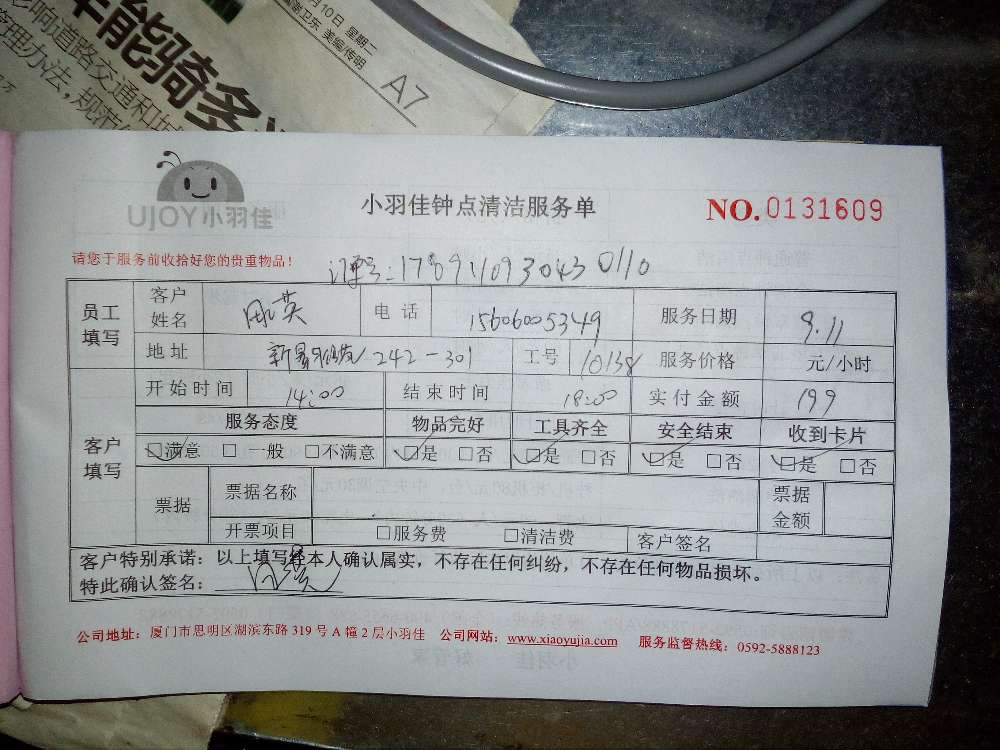 能骑多
影响道路交通和
管理办法,规范
月10日 星期二
谢卫东 美编/传明
A7
UJOY小羽佳
小羽佳钟点清洁服务单
NO.0131609
请您于服务前收拾好您的贵重物品!
订单号:1789110930430110
员工填写 客户姓名 英 电话 15606005349 服务日期 9.11
地址 242-301 工号 10138 服务价格 元/小时
客户填写 开始时间 14:00 结束时间 18:00 实付金额 199
服务态度 物品完好 工具齐全 安全结束 收到卡片
□满意 □一般 □不满意 □是 □否 □是 □否 □是 □否 □是 □否
票据 票据名称 票据金额
开票项目 □服务费 □清洁费 客户签名
客户特别承诺:以上填写经本人确认属实,不存在任何纠纷,不存在任何物品损坏。
特此确认签名:
公司地址:厦门市思明区湖滨东路 319 号 A 幢 2 层小羽佳 公司网站:www.xiaoyujia.com 服务监督热线:0592-5888123